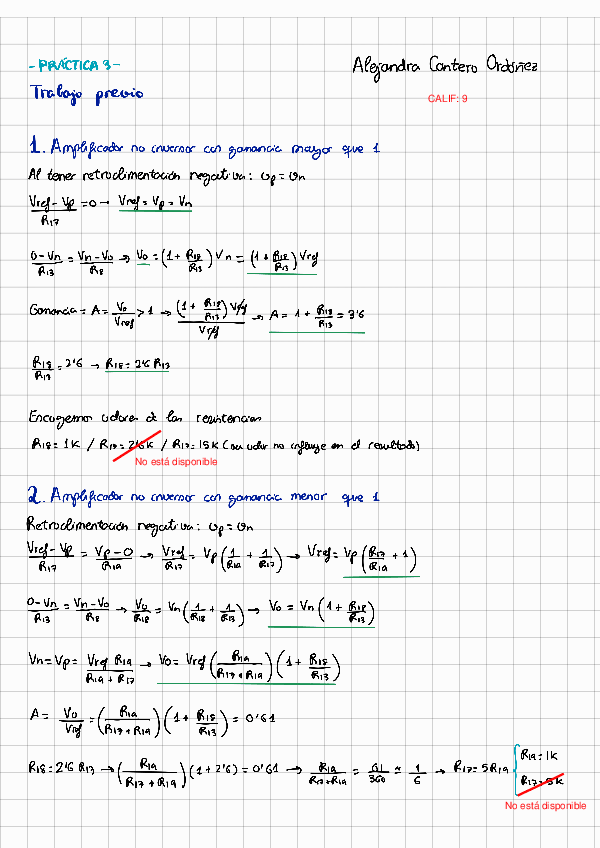 - PRÁCTICA 3 -
Alejandra Cantero Ordóñez
Trabajo previo
CALIF: 9
1. Amplificador no inversor con ganancia mayor que 1
Al tener retroalimentación negativa: Up = Un
(Vref - Vp)/R17 = 0 → Vref = Vp = Vn
(0 - Vn)/R13 = (Vn - Vo)/R18 → Vo = (1 + R18/R13) Vn = (1 + R18/R13) Vref
Ganancia = A = Vo/Vref > 1 → ((1 + R18/R13) Vref)/Vref → A = 1 + R18/R13 = 3'6
R18/R13 = 2'6 → R18 = 2'6 R13
Escogemos valores de las resistencias
R18 = 1K / R13 = 2'6K / R17 = 15K (su valor no influye en el resultado)
No está disponible
2. Amplificador no inversor con ganancia menor que 1
Retroalimentación negativa: Up = Un
(Vref - Vp)/R17 = (Vp - 0)/R19 → Vref/R17 = Vp (1/R19 + 1/R17) → Vref = Vp (R17/R19 + 1)
(0 - Vn)/R13 = (Vn - Vo)/R18 → Vo/R18 = Vn (1/R18 + 1/R13) → Vo = Vn (1 + R18/R13)
Vn = Vp = (Vref R19)/(R19 + R17) → Vo = Vref (R19/(R17 + R19)) (1 + R18/R13)
A = Vo/Vref = (R19/(R17 + R19)) (1 + R18/R13) = 0'61
R18 = 2'6 R13 → (R19/(R17 + R19)) (1 + 2'6) = 0'61 → R19/(R17 + R19) = 61/360 ≈ 1/6 → R17 = 5R19
R19 = 1K
R17 = 5K
No está disponible